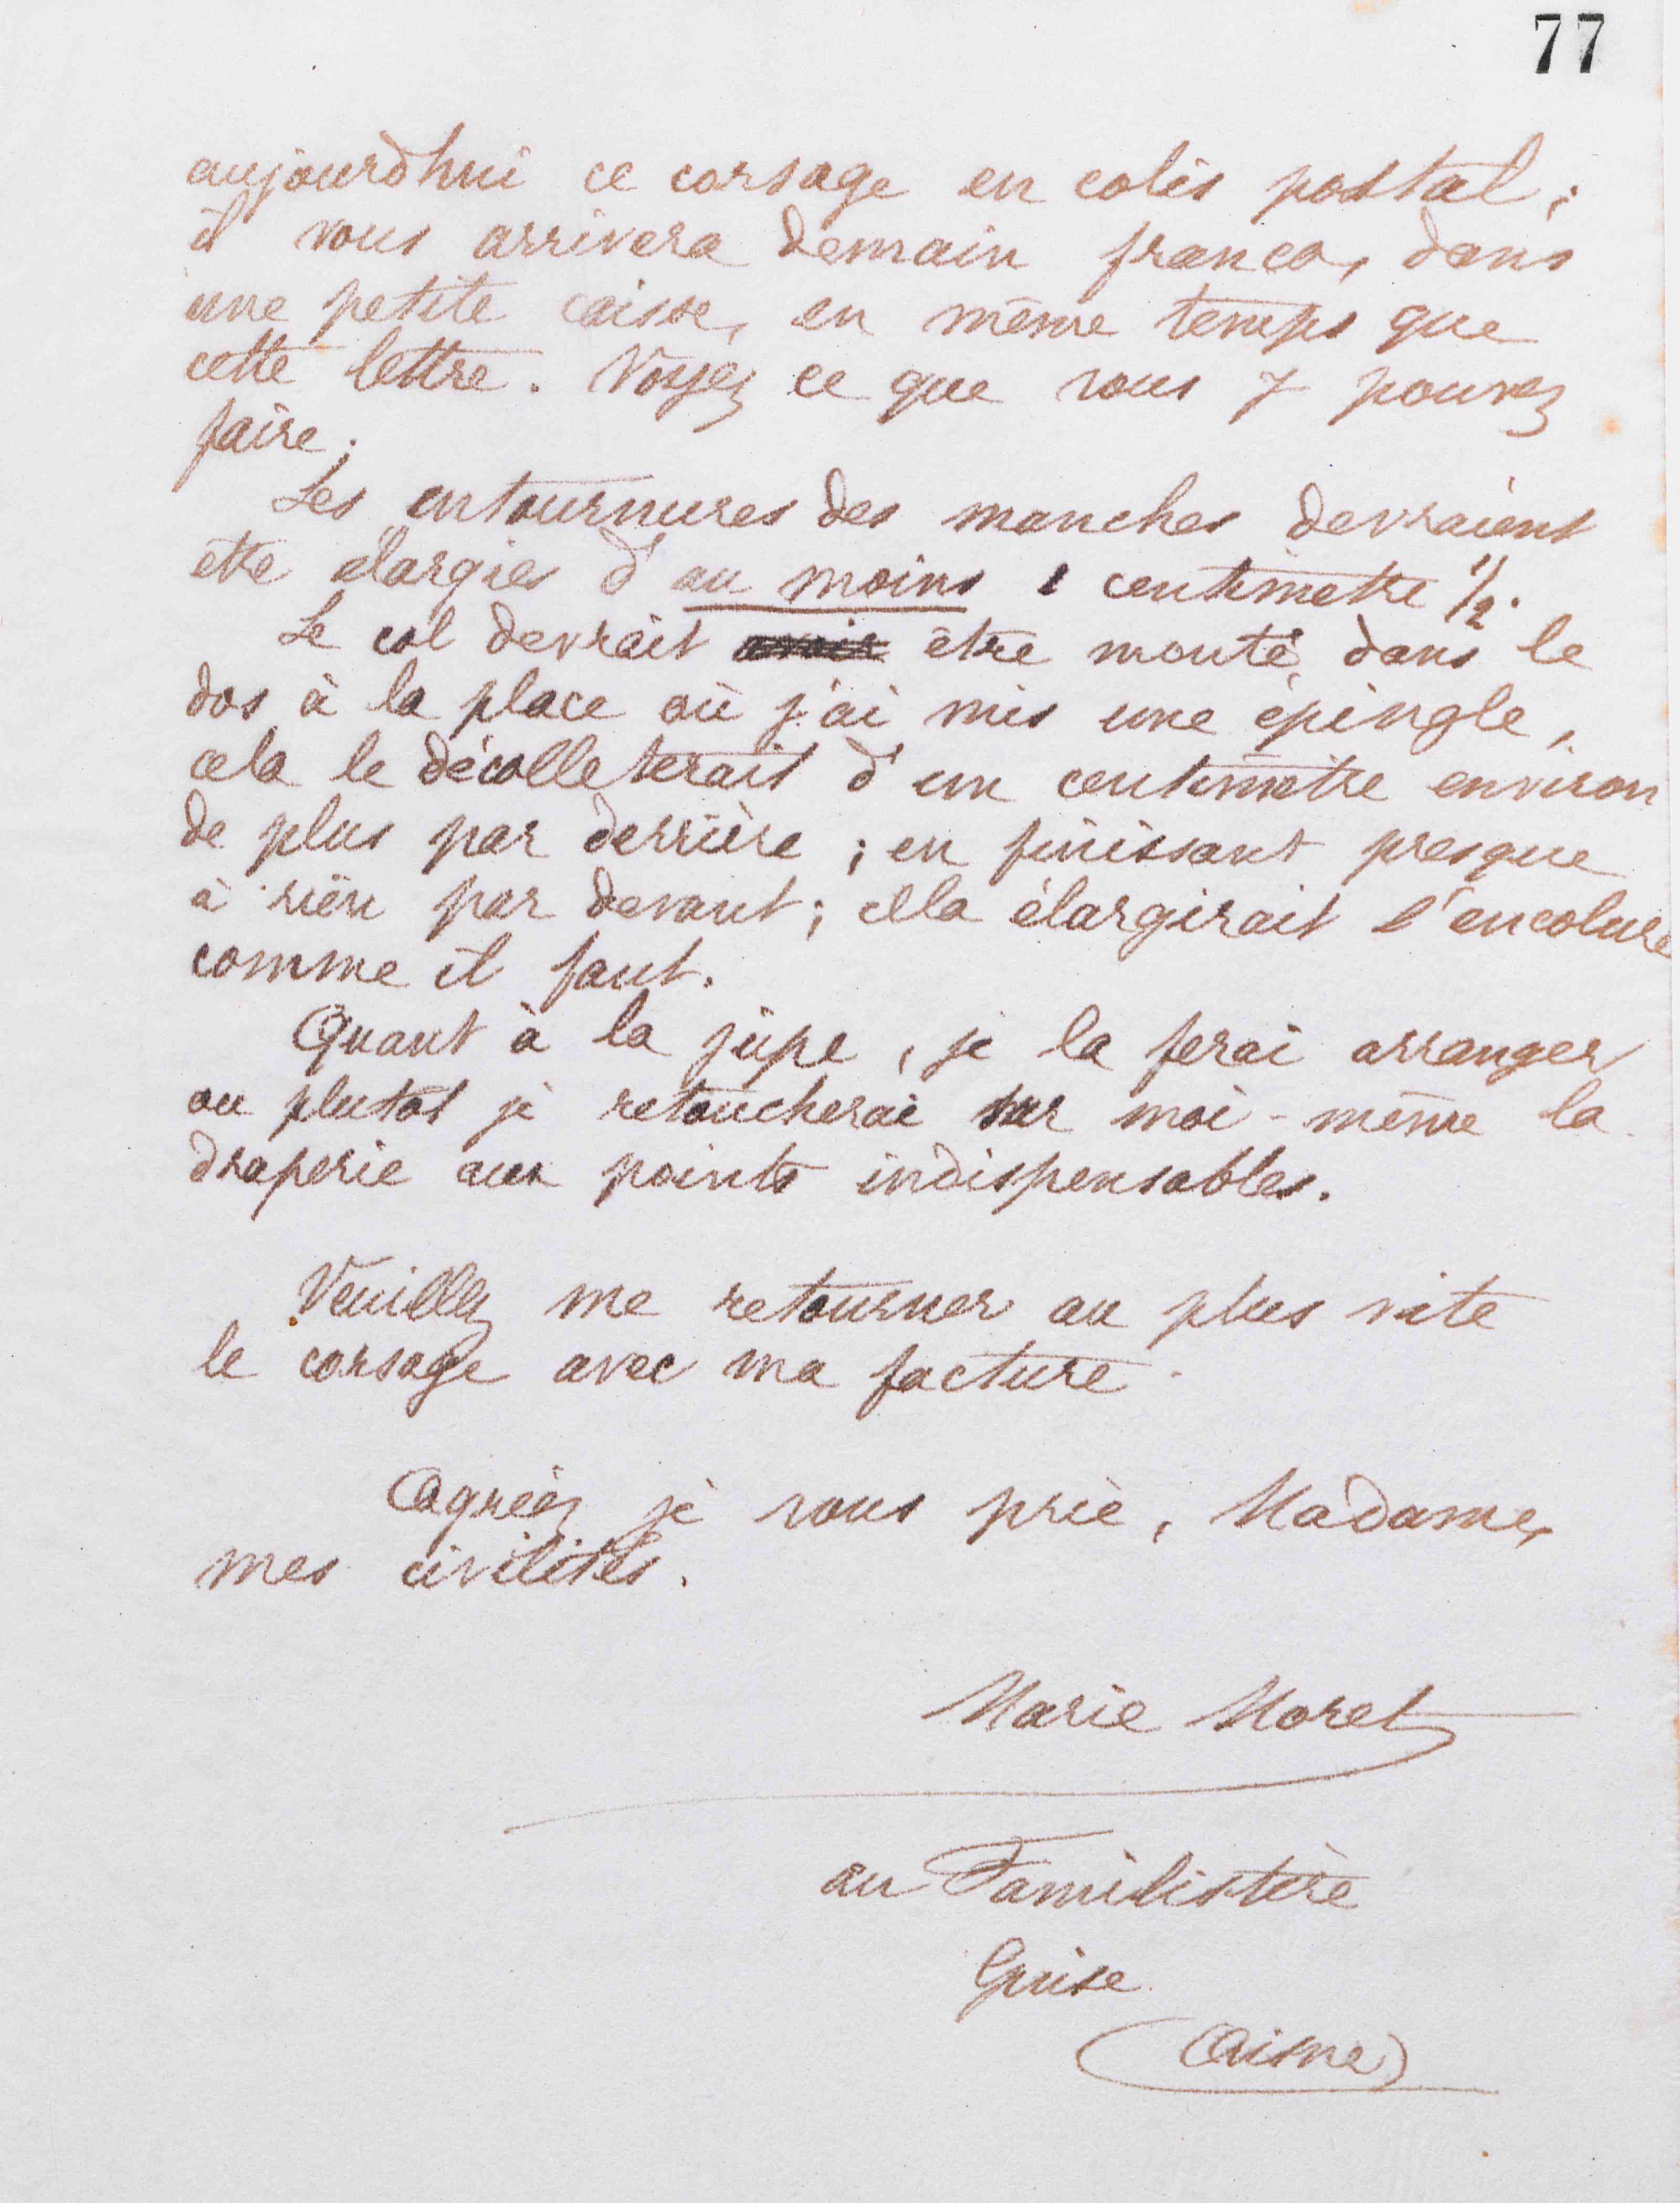 77
aujourd'hui ce corsage en colis postal ;
il vous arrivera demain franco, dans
une petite caisse, en même temps que
cette lettre. Voyez ce que vous y pouvez
faire.
Les entournures des manches devraient
être élargies d'au moins 1 centimètre 1/2.
Le col devrait avoir être monté dans le
dos à la place où j'ai mis une épingle,
cela le décolleterait d'un centimètre environ
de plus par derrière ; en finissant presque
à rien par devant ; cela élargirait l'encolure
comme il faut.
Quant à la jupe, je la ferai arranger
ou plutôt je retoucherai sur moi-même la
draperie aux points indispensables.
Veuillez me retourner au plus vite
le corsage avec ma facture.
Agréez je vous prie, Madame,
mes civilités.
Marie Moret
au Familistère
Guise
(Aisne)